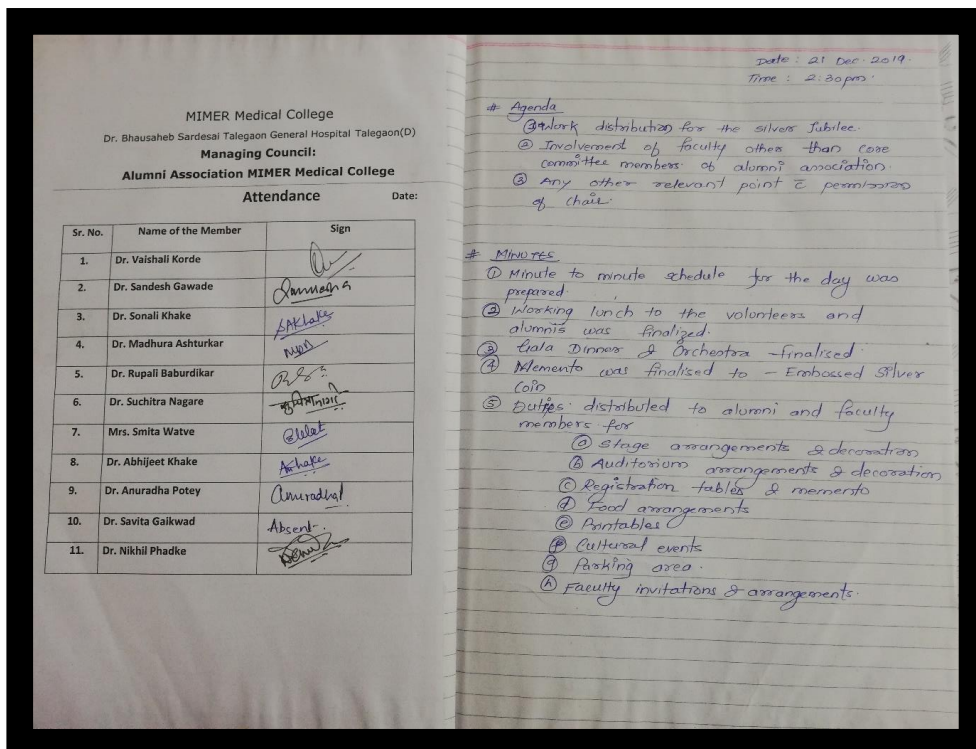 MIMER Medical College
Dr. Bhausaheb Sardesai Talegaon General Hospital Talegaon(D)
Managing Council:
Alumni Association MIMER Medical College
Attendance Date:
Sr. No. Name of the Member Sign
1. Dr. Vaishali Korde
2. Dr. Sandesh Gawade
3. Dr. Sonali Khake SAKhake
4. Dr. Madhura Ashturkar
5. Dr. Rupali Baburdikar
6. Dr. Suchitra Nagare
7. Mrs. Smita Watve
8. Dr. Abhijeet Khake
9. Dr. Anuradha Potey
10. Dr. Savita Gaikwad Absent
11. Dr. Nikhil Phadke
Date : 21 Dec. 2019.
Time : 2:30pm.
# Agenda
① Work distribution for the silver Jubilee.
② Involvement of faculty other than core
committee members of alumni association.
③ Any other relevant point c̄ permission
of chair.
# MINUTES
① Minute to minute schedule for the day was
prepared.
② Working lunch to the volunteers and
alumnis was finalized.
③ Gala Dinner & Orchestra - finalised.
④ Memento was finalised to - Embossed Silver
Coin
⑤ Duties distributed to alumni and faculty
members for
ⓐ Stage arrangements & decoration
ⓑ Auditorium arrangements & decoration
ⓒ Registration tables & memento
ⓓ Food arrangements
ⓔ Printables
ⓕ Cultural events
ⓖ Parking area.
ⓗ Faculty invitations & arrangements.